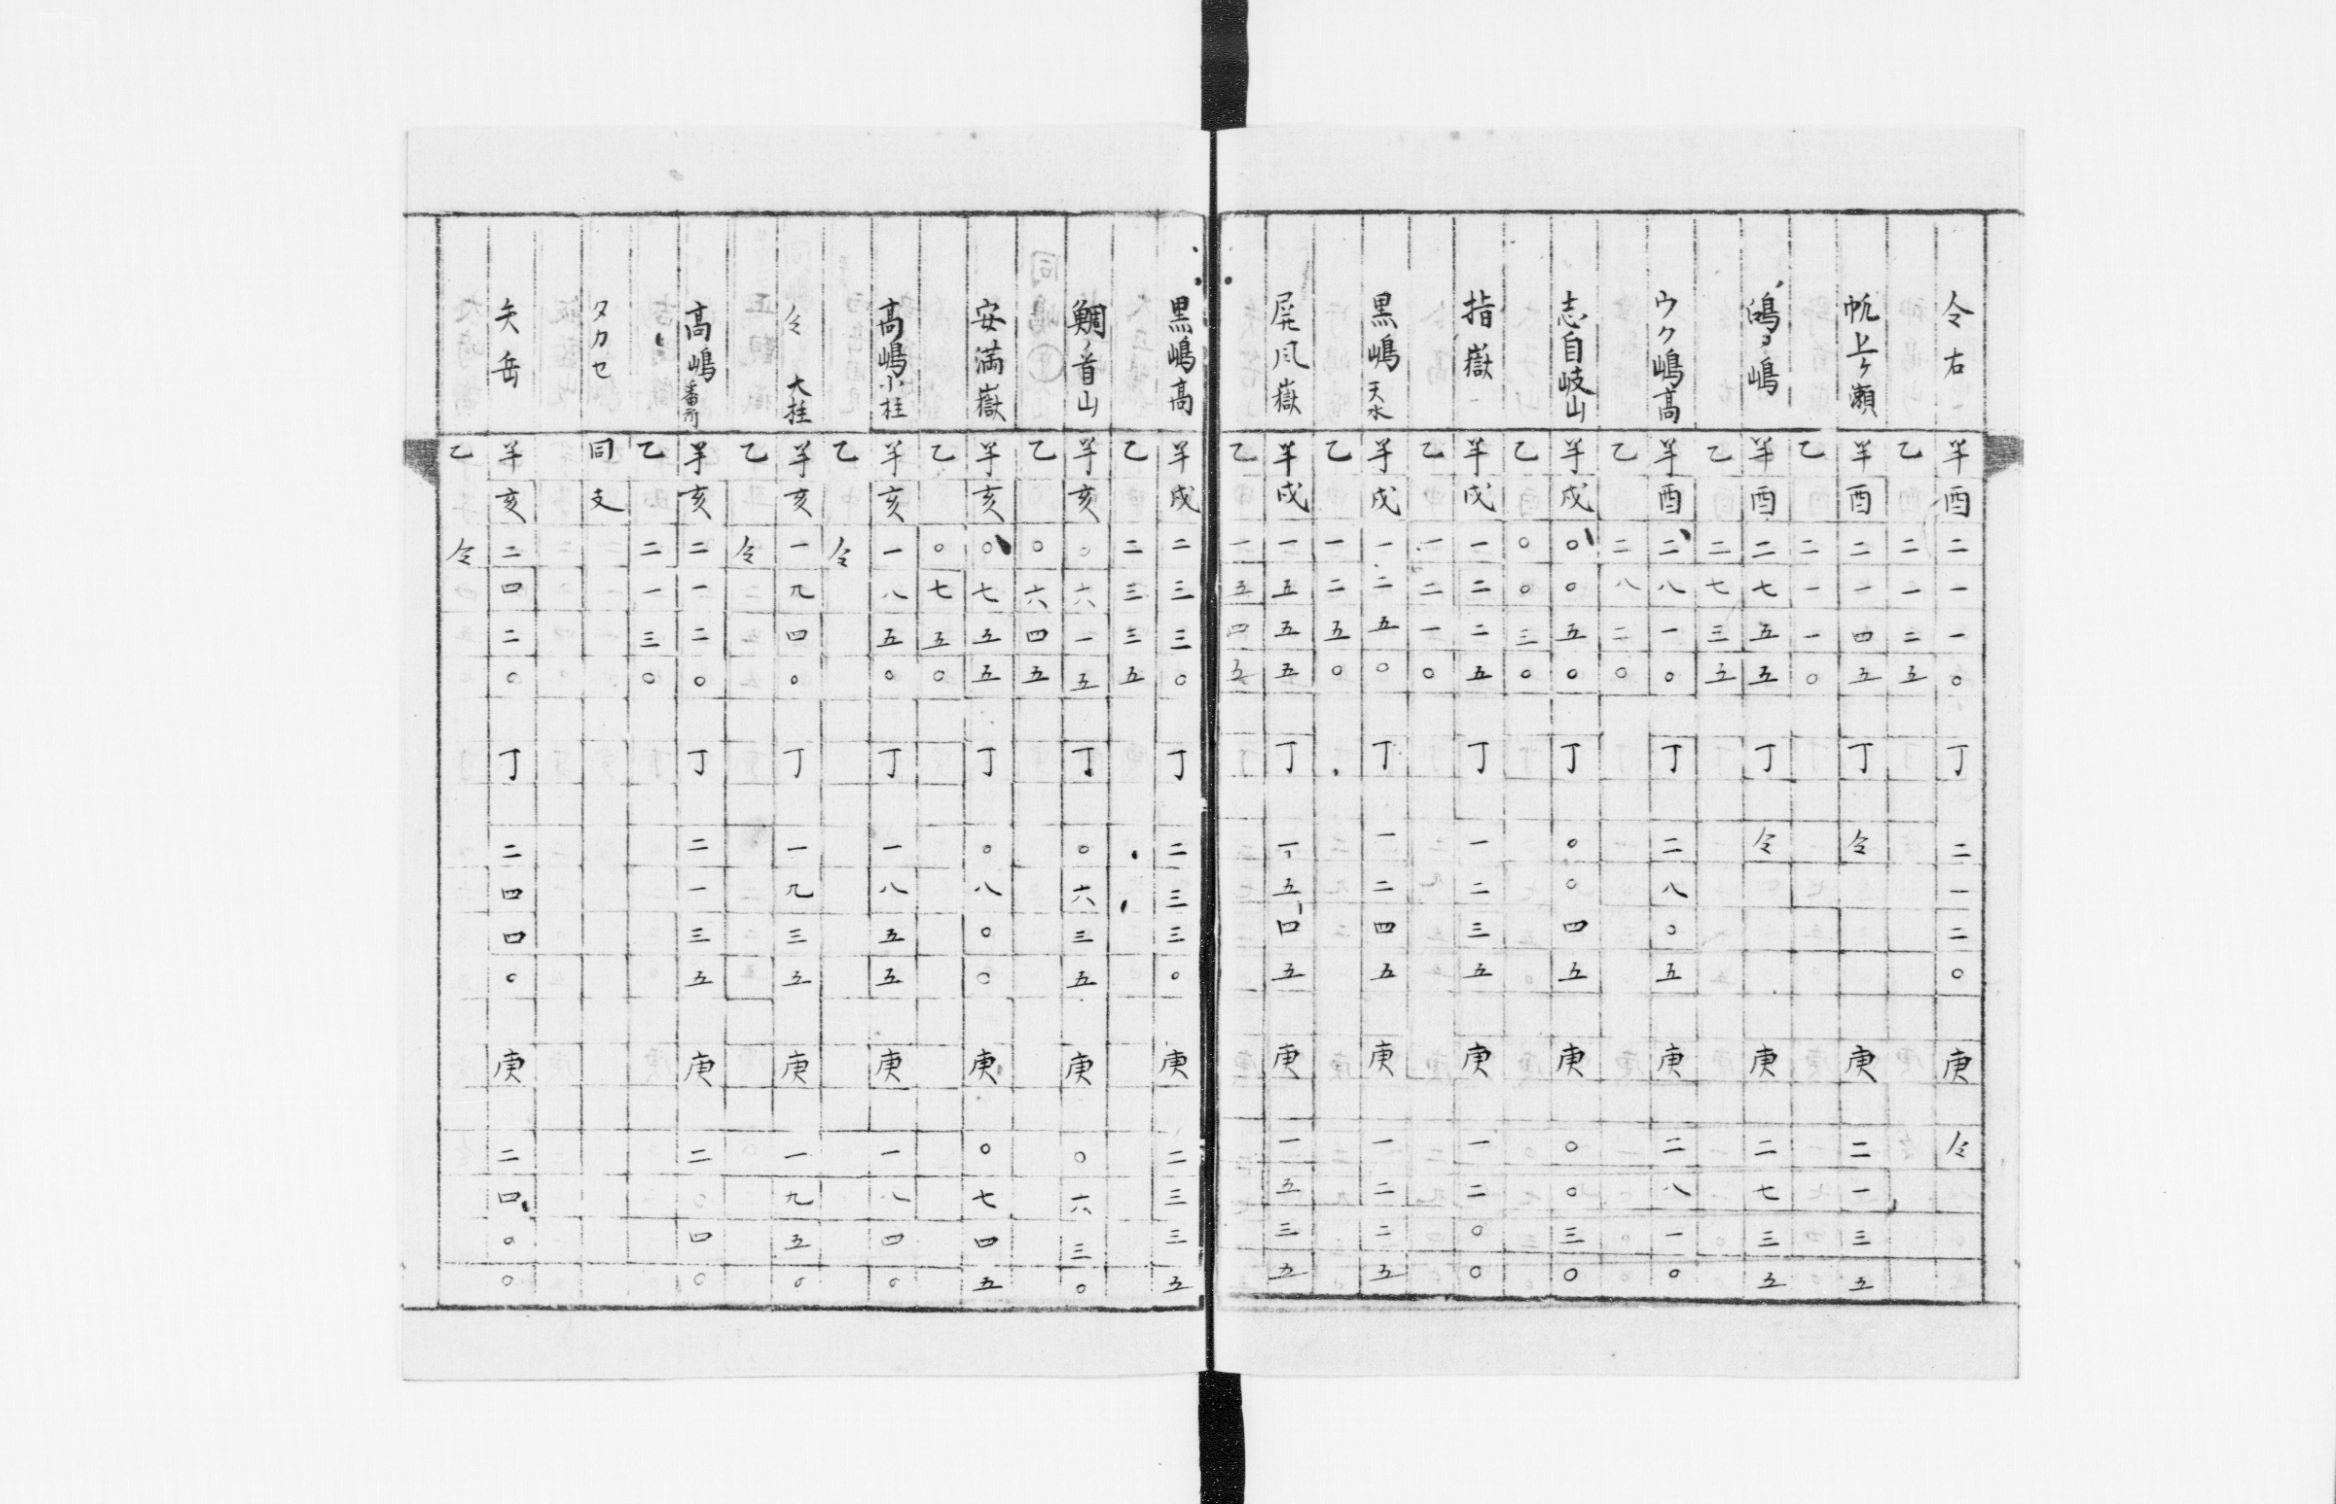 仝右 半酉二一一〇 丁二一二〇 庚仝
乙二一二五
帆上ケ瀬 半酉二一四五 丁仝 庚二一三五
乙二一一〇
嶋 半酉二七五五 丁仝 庚二七三五
乙二七三五
ウク嶋高 半酉二八一〇 丁二八〇五 庚二八一〇
乙二八二〇
志自岐山 半戌〇〇五〇 丁〇〇四五 庚〇〇三〇
乙〇〇三〇
指嶽 半戌一二二五 丁一二三五 庚一二〇〇
乙一二一〇
黒嶋天水 半戌一二五〇 丁一二四五 庚一二二五
乙一二五〇
屏風嶽 半戌一五五五 丁一五四五 庚一五三五
乙一五四五
黒嶋高 半戌二三三〇 丁二三三〇 庚二三三五
乙二三三五
鯛ノ首山 半亥〇六一五 丁〇六三五 庚〇六三〇
乙〇六四五
安満嶽 半亥〇七五五 丁〇八〇〇 庚〇七四五
乙〇七五〇
高嶋小柱 半亥一八五〇 丁一八五五 庚一八四〇
乙仝
仝 大柱 半亥一九四〇 丁一九三五 庚一九五〇
乙仝
高嶋番所 半亥二一二〇 丁二一三五 庚二〇四〇
乙二一三〇
タカセ 同支
矢岳 半亥二四二〇 丁二四四〇 庚二四〇〇
乙仝